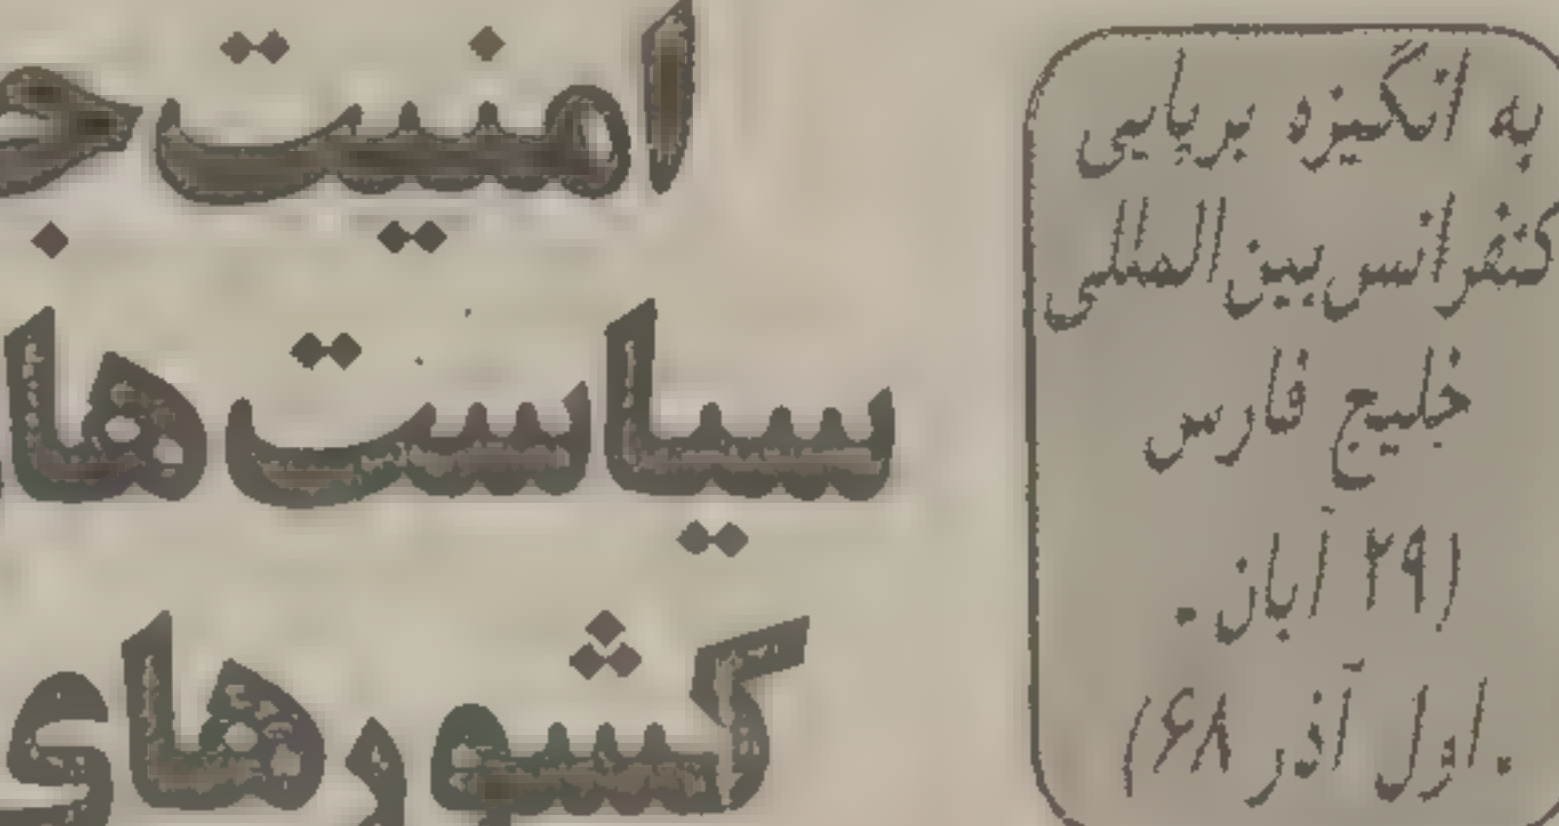 به انگیزه برپایی
کنفرانس بین‌المللی
خلیج فارس
(۲۹ آبان -
- اول آذر ۶۸)
امنیت
سیاست‌ها
کشورهای